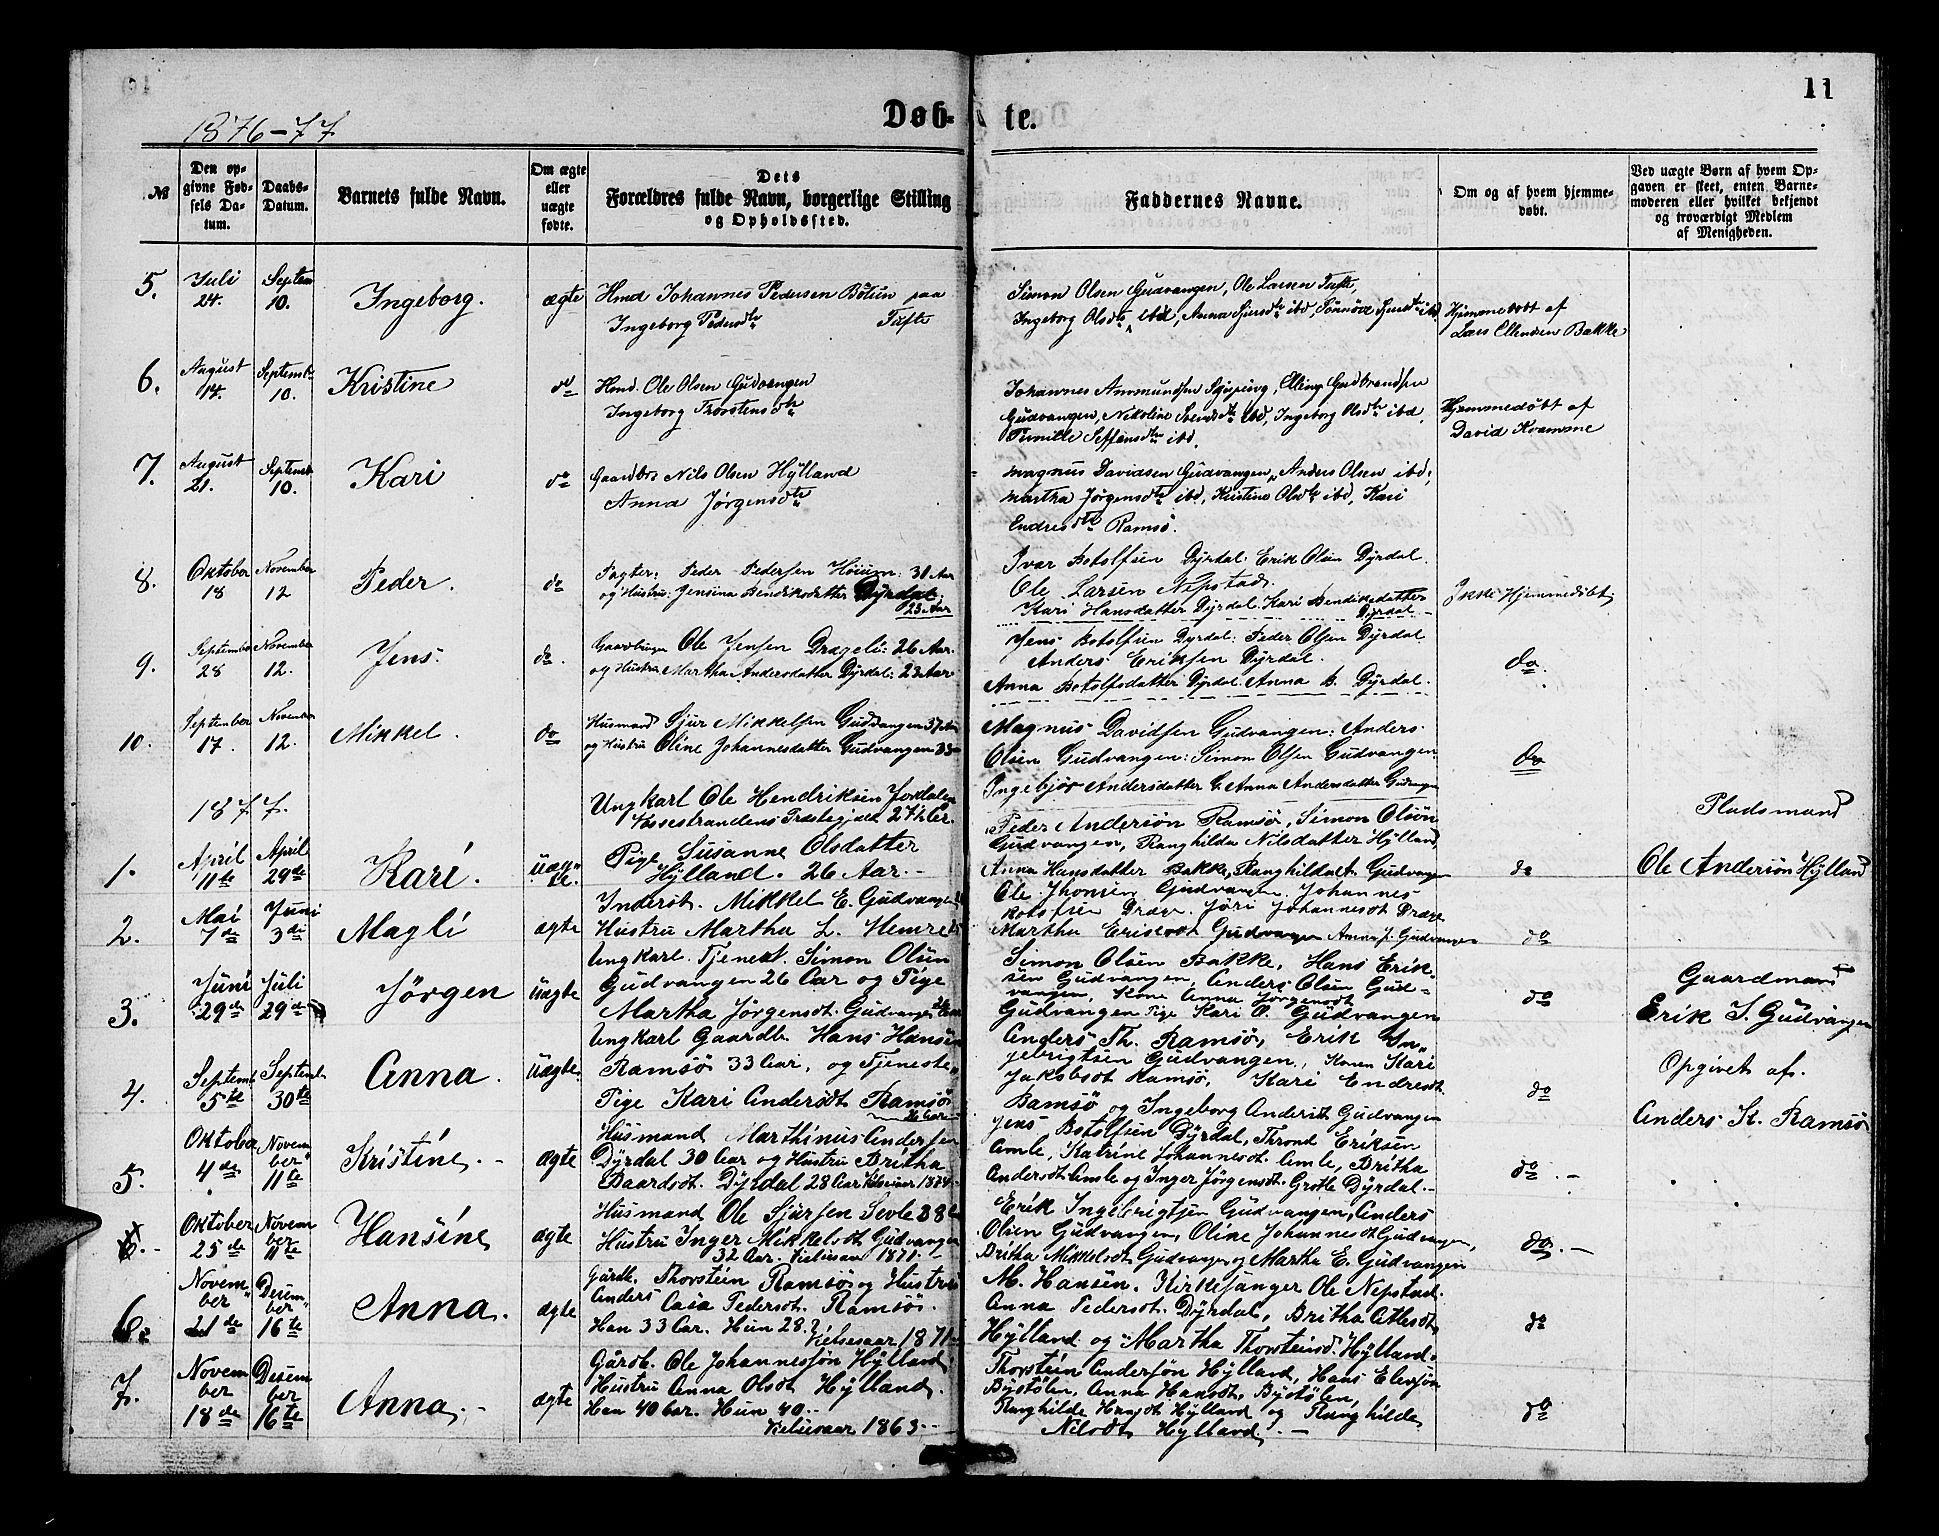 11
Døb- te.
1876-77
№
Den opgivne Fødsels Datum.
Daabs-Datum.
Barnets fulde Navn.
Om ægte eller uægte fødte.
Dets Forældres fulde Navn, borgerlige Stilling og Opholdssted.
Faddernes Navne.
Om og af hvem hjemmedøbt.
Ved uægte Børn af hvem Opgaven er skeet, enten Barnemoderen eller hvilket bekjendt og troværdigt Medlem af Menigheden.
5. Juli 24. Septem 10. Ingeborg. ægte
Hmd Johannes Pedersen Bötun paa
Ingeborg Pedersdtr Tufte
Simon Olsen Gudvangen, Ole Larsen Tufte,
Ingeborg Olsdtr ibd, Anna Sjursdtr ibd, Sjursdtr ibd
Hjemmedöbt af
Lars Ellendsen Bakke
6. August 14. Septembr 10. Kristine do
Hmd. Ole Olsen Gudvangen
Ingeborg Torstensdtr
Johannes Ammundsen Elling Gudbrandsen
Gudvangen, Nikoline ibd, Ingeborg Olsdtr ibd,
ibd.
Hjemmedöbt af
David Kvamme
7. August 21. Septembr 10. Kari do
Gaardbr Nils Olsen Hÿlland
Anna Jørgensdtr
Magnus Davidsen Gudvangen, Anders Olsen ibd,
Martha Jørgensdtr ibd, Kristine Olsdtr ibd, Kari
Endresdtr Ramsö.
8. Oktober 18 November 12 Peder. do
Pagter: Peder Pedersen Höium: 31 Aar
og Hustru: Jensina Bendiksdatter Dÿrdal:
23 Aar
Ivar Botolfsen Dÿrdal. Erik Olsen Dÿrdal
Ole Larsen Nepstad.
Kari Hansdatter Dÿrdal. Kari Bendiksdatter
Dÿrdal.
Ikke Hjemmedöbt
9. September 28 November 12. Jens. do.
Gaardbruger Ole Jensen Drægeli: 26 Aar.
og Hustru Martha Andersdatter Dÿrdal: 23 Aar
Jens Botolfsen Dyrdal: Peder Olsen Dÿrdal
Anders Eriksen Dÿrdal.
Anna Botolfsdatter Dÿrdal. Anna B. Dÿrdal.
do.
10. September 17. November 12. Mikkel. do
Husmand Sjur Mikkelsen Gudvangen 37 Aar
og Hustru Oline Johannesdatter Gudvangen 33
Magnus Davidsen Gudvangen: Anders
Olsen Gudvangen: Simon Olsen Gudvangen
Ingebjør Andersdatter G. Anna Andersdatter Gudvangen
do
1877.
1. April 11te April 29de Kari. uægte.
Ungkarl Ole Hendriksen Jordalen
Vossestrandens Præstegjæld 27½ Ar.
Pige Susanne Olsdatter
Hÿlland. 26 Aar.
Peder Andersön Ramsö, Simon Olsön
Gudvangen, Ranghilda Nilsdatter Hÿlland,
Anna Hansdatter Bakke, Gudvangen
do
Pladsmand
Ole Andersön Hÿlland
2. Mai 7de Juni 3di Magli ægte
Inderst. Mikkel E. Gudvangen
Hustru Martha L. Hemre
Ole Jhonsen Gudvangen Johannes
Botolfsen Dræge. Jöri Johannesdt Dræge
Martha Gudvangen Anna J. Gudvangen
do
3. Juni 29de Juli 29de Jörgen uægte
Ungkarl. Tjenest. Simon Olsen
Gudvangen 26 Aar og Pige
Martha Jörgensdt. Gudvangen
Simon Olsen Bakke, Hans Eriksen
Gudvangen, Anders Olsen Gudvangen,
Kone Anna Jörgensdt
Gudvangen Pige Kari O. Gudvangen
do
Gaardmand
Erik S. Gudvangen
4. Septembr 5te Septembr 30te Anna. uægte.
Ungkarl Gaardb. Hans Hansen
Ramsö 33 Aar, og Tjeneste-
Pige Kari Andersdt Ramsö
26 Aar
Anders Th. Ramsö, Erik In-
gebrigtsen Gudvangen, Konen Kari
Jakobsdt Ramsö, Kari Endresdt
Ramsö og Ingeborg Andersdt Gudvangen
do
Opgivet af.
Anders K. Ramsö
5. Oktober 4de November 11te Kristine. ægte
Husmand Marthinus Andersen
Dÿrdal 30 Aar og Hustru Britha
Baardsdt. Dÿrdal 28 Aar Vielsesaar 1874
Jens Botolfsen Dÿrdal, Thrond Eriksen
Amle, Katrine Johannesdt. Amle, Britha
Andersdt Amle og Inger Jörgensdt. Grotle Dÿrdal.
do.
6. Oktober 25de November 11te Hansine ægte
Husmand Ole Sjursen Sevle 38
Hustru Inger Mikkelsdt Gudvangen
32 Aar. Vielsesaar 1871.
Erik Ingebrigtsen Gudvangen, Anders
Olsen Gudvangen, Oline Johannesdt Gudvangen,
Britha Mikkelsdt Gudvangen og Martha E. Gudvangen
do.
6. November 21de Desember 16te Anna. ægte
Gårdb. Thorstein Ramsö og Hustru
Anders Pedersdt. Ramsö.
Han 33 Aar. Hun 28.
Vielsesaar 1871
M. Hansen. Kirkesanger Ole Nepstad.
Anna Pedersdt. Dÿrdal, Britha Atlesdt
Hÿlland og Martha Thorsteinsd. Hÿlland.
do
7. November 18de Desember 16te Anna. ægte
Gårdb. Ole Johannessön Hÿlland
Hustru Anna Olsdt Hÿlland.
Han 40 Aar. Hun 40.
Vielsesaar 1863
Thorstein Andersön Hÿlland, Hans Elevsön
Bÿstölen, Anna Hansdt, Bÿstölen,
Ranghilde Hansdt Hÿlland og Ranghilde
Nilsdt Hÿlland.
do